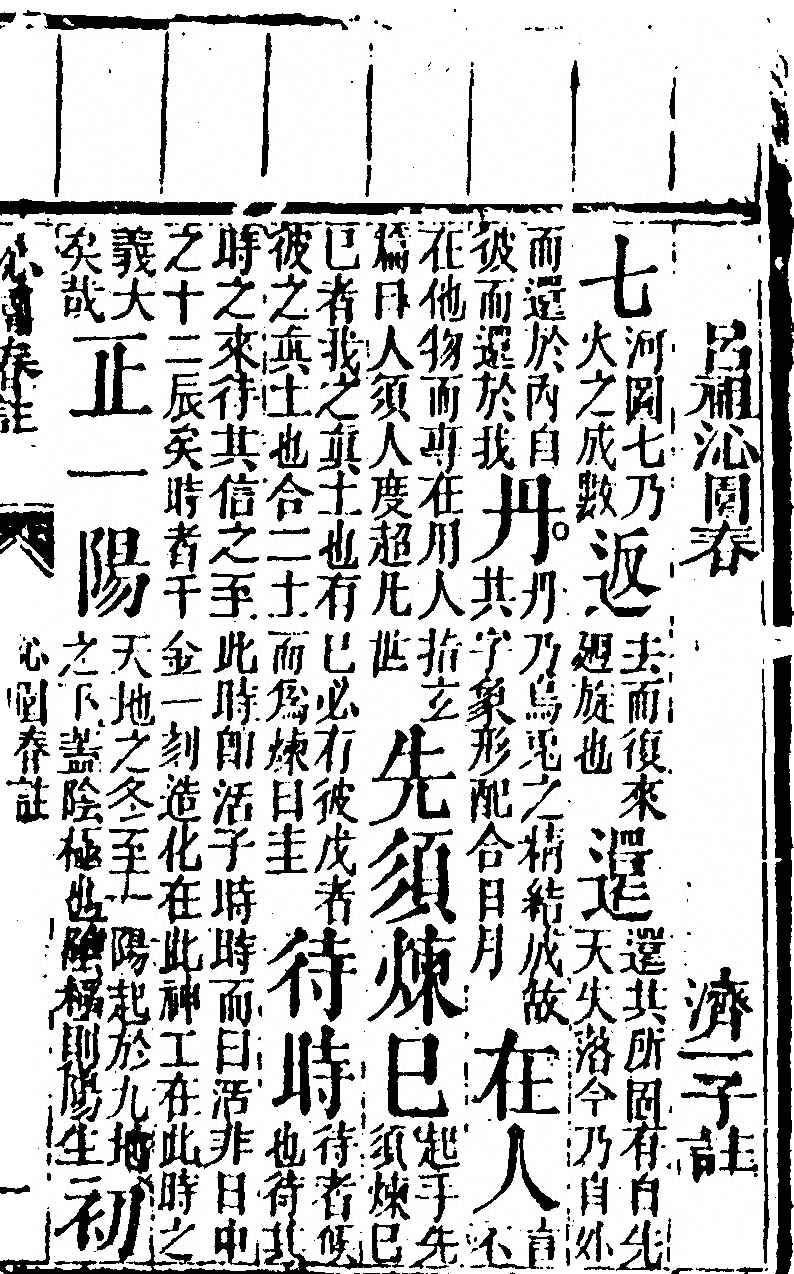 呂祖沁園春　濟一子註
七河圖七乃火之成數返去而復來廻旋也還還其所固有自先天失落今乃自外
而還於內自彼而還於我丹丹乃烏兎之精結成故其字象形配合日月在人言不
在他物而專在用人指立篇曰人須人度超凡世先須煉己起手先須煉己
己者我之眞土也有己必有彼戊者彼之眞土也合二土而爲煉曰圭待時待者候也待其
時之來待其信之至此時卽活子時時而曰活非日中之十二辰矣時者千金一刻造化在此神工在此時之
義大矣哉正一陽天地之冬至一陽起於九地之下蓋陰極也陰極則陽生初
沁園春註　沁園春註　一